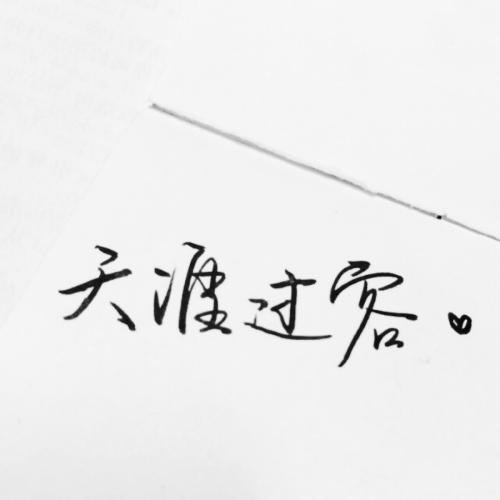 天涯过客